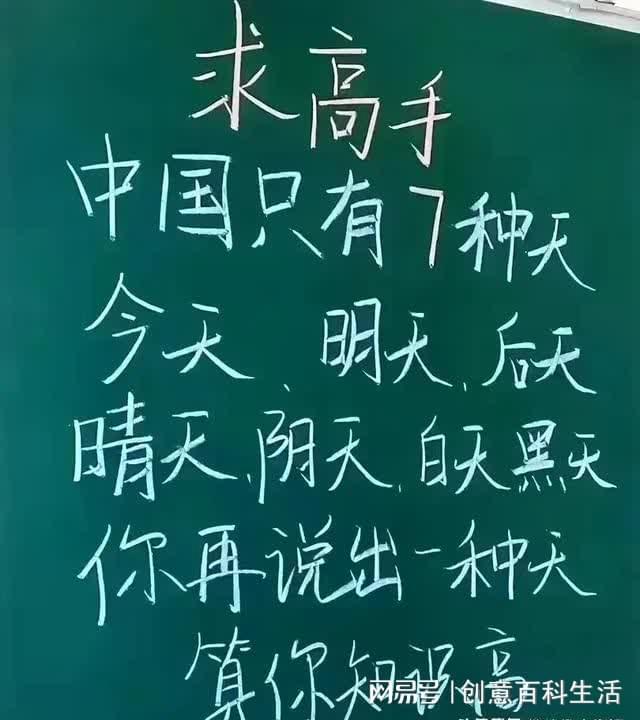 求高手
中国只有7种天
今天、明天、后天
晴天、阴天、白天黑天
你再说出一种天
算你知识高
网易号 | 创意百科生活